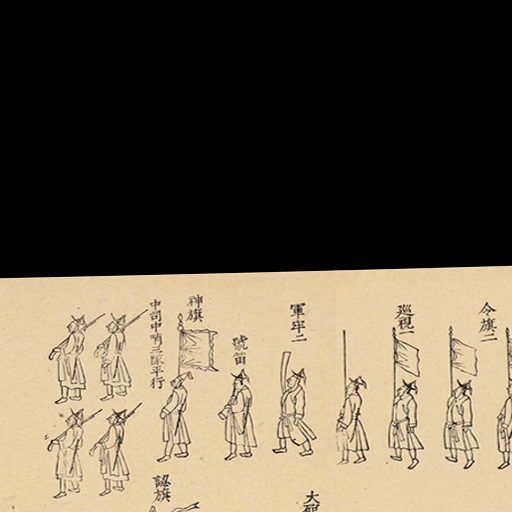 令旗二
巡視一
軍牢二
號笛
神旗
中司中哨三隊平行
大砲
認旗